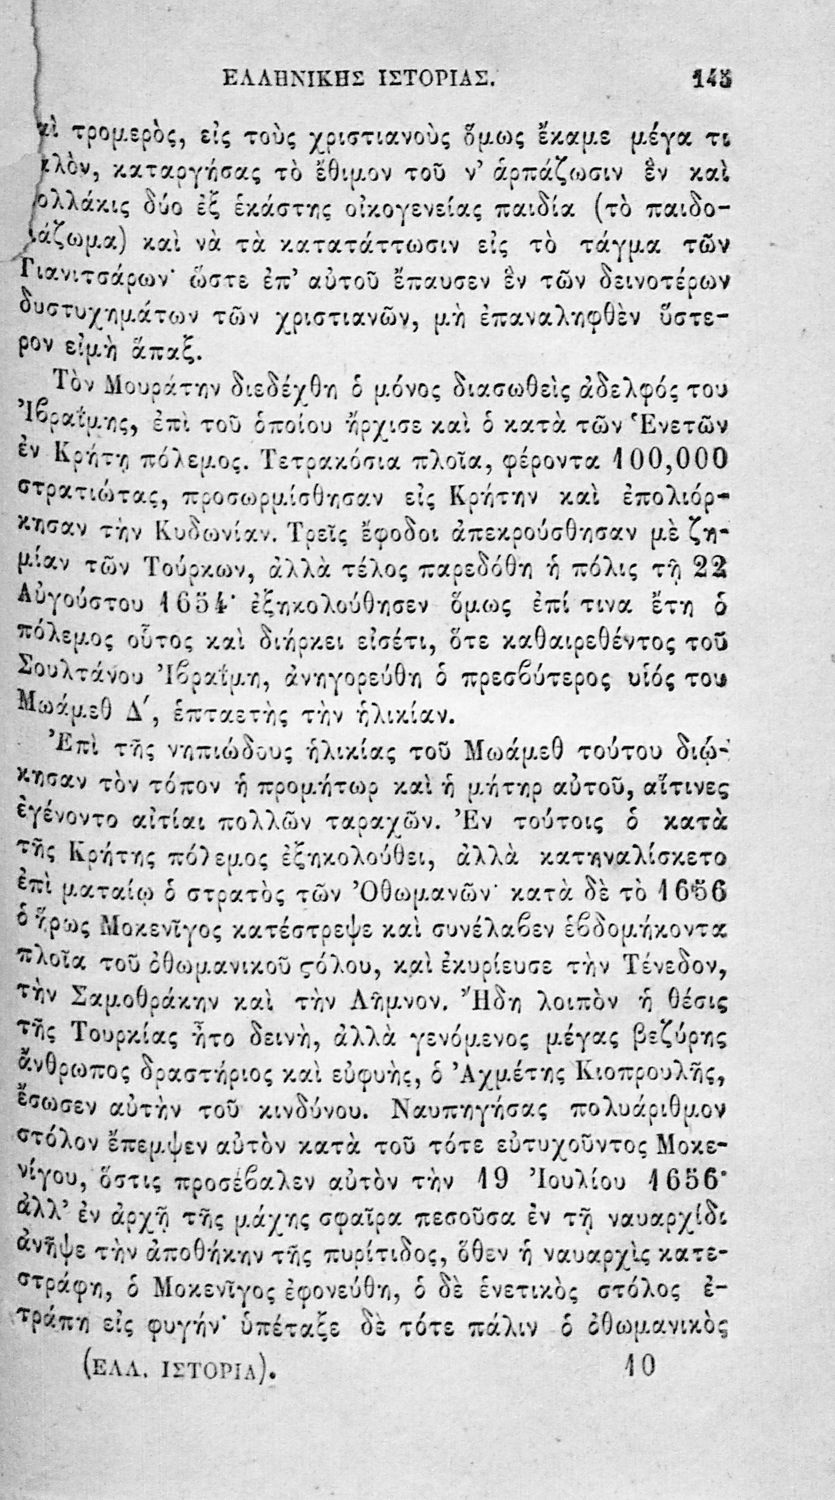 ΕΛΛΗΝΙΚΗΣ ΙΣΤΟΡΙΑΣ. 145
τρομερὸς, εἰς τοὺς χριστιανοὺς ὅμως ἔκαμε μέγα τι
καταργήσας τὸ ἔθιμον τοῦ ν’ ἁρπάζωσιν ἓν καὶ
ολλάκις δύο ἐξ ἑκάστης οἰκογενείας παιδία (τὸ παιδο-
άζωμα) καὶ νὰ τὰ κατατάττωσιν εἰς τὸ τάγμα τῶν
Γιανιτσάρων· ὥστε ἐπ’ αὐτοῦ ἔπαυσεν ἓν τῶν δεινοτέρων
δυστυχημάτων τῶν χριστιανῶν, μὴ ἐπαναληφθὲν ὕστε-
ρον εἰμὴ ἅπαξ.
Τὸν Μουράτην διεδέχθη ὁ μόνος διασωθεὶς ἀδελφός του
Ἰβραΐμης, ἐπὶ τοῦ ὁποίου ἤρχισε καὶ ὁ κατὰ τῶν Ἑνετῶν
ἐν Κρήτῃ πόλεμος. Τετρακόσια πλοῖα, φέροντα 100,000
στρατιώτας, προσωρμίσθησαν εἰς Κρήτην καὶ ἐπολιόρ-
κησαν τὴν Κυδωνίαν. Τρεῖς ἔφοδοι ἀπεκρούσθησαν μὲ ζη-
μίαν τῶν Τούρκων, ἀλλὰ τέλος παρεδόθη ἡ πόλις τῇ 22
Αὐγούστου 1654· ἐξηκολούθησεν ὅμως ἐπί τινα ἔτη ὁ
πόλεμος οὗτος καὶ διήρκει εἰσέτι, ὅτε καθαιρεθέντος τοῦ
Σουλτάνου Ἰβραΐμη, ἀνηγορεύθη ὁ πρεσβύτερος υἱός του
Μωάμεθ Δ΄, ἑπταετὴς τὴν ἡλικίαν.
Ἐπὶ τῆς νηπιώδους ἡλικίας τοῦ Μωάμεθ τούτου διῴ-
κησαν τὸν τόπον ἡ προμήτωρ καὶ ἡ μήτηρ αὐτοῦ, αἵτινες
ἐγένοντο αἰτίαι πολλῶν ταραχῶν. Ἐν τούτοις ὁ κατὰ
τῆς Κρήτης πόλεμος ἐξηκολούθει, ἀλλὰ κατηναλίσκετο
ἐπὶ ματαίῳ ὁ στρατὸς τῶν Ὀθωμανῶν· κατὰ δὲ τὸ 1656
ὁ ἥρως Μοκενῖγος κατέστρεψε καὶ συνέλαβεν ἑβδομήκοντα
πλοῖα τοῦ ὀθωμανικοῦ ϛόλου, καὶ ἐκυρίευσε τὴν Τένεδον,
τὴν Σαμοθράκην καὶ τὴν Λῆμνον. Ἤδη λοιπὸν ἡ θέσις
τῆς Τουρκίας ἦτο δεινὴ, ἀλλὰ γενόμενος μέγας βεζύρης
ἄνθρωπος δραστήριος καὶ εὐφυὴς, ὁ Ἀχμέτης Κιοπρουλῆς,
ἔσωσεν αὐτὴν τοῦ κινδύνου. Ναυπηγήσας πολυάριθμον
στόλον ἔπεμψεν αὐτὸν κατὰ τοῦ τότε εὐτυχοῦντος Μοκε-
νίγου, ὅστις προσέβαλεν αὐτὸν τὴν 19 Ἰουλίου 1656·
ἀλλ’ ἐν ἀρχῇ τῆς μάχης σφαῖρα πεσοῦσα ἐν τῇ ναυαρχίδι
ἀνῆψε τὴν ἀποθήκην τῆς πυρίτιδος, ὅθεν ἡ ναυαρχὶς κατε-
στράφη, ὁ Μοκενῖγος ἐφονεύθη, ὁ δὲ ἑνετικὸς στόλος ἐ-
τράπη εἰς φυγήν· ὑπέταξε δὲ τότε πάλιν ὁ ὀθωμανικὸς
(ΕΛΛ. ΙΣΤΟΡΙΑ). 10